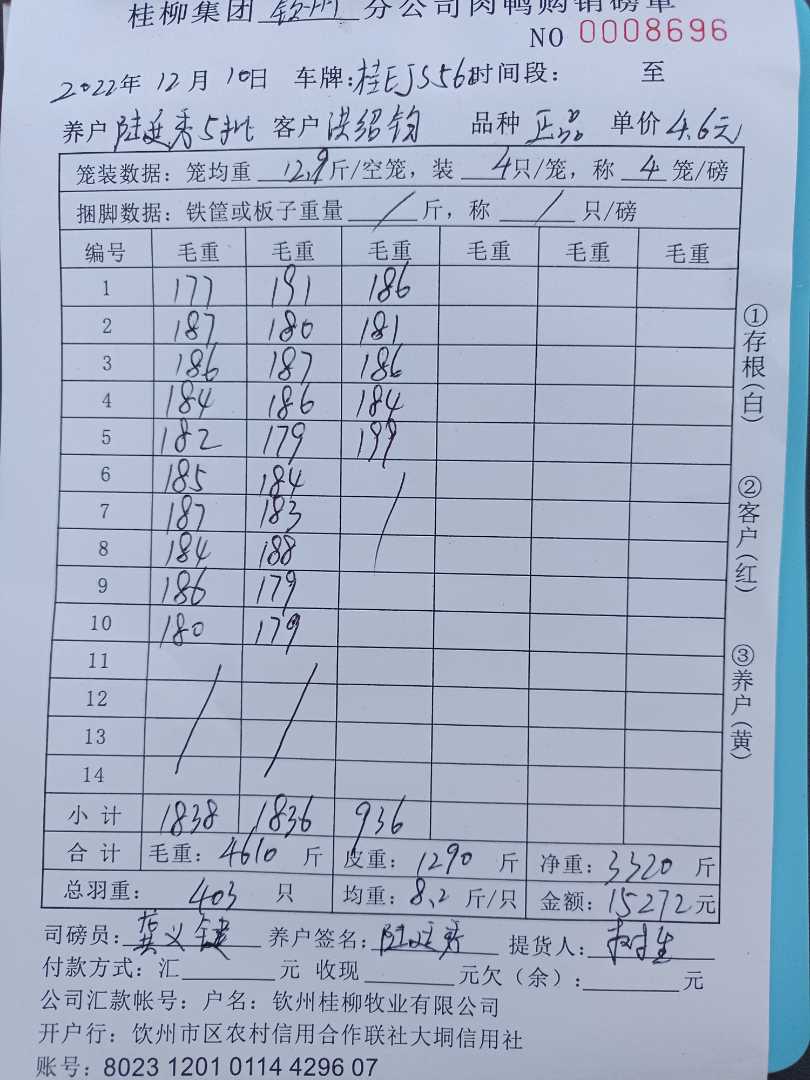 桂柳集团 钦州 分公司肉鸭购销磅单
NO 0008696
2022年 12月 10日 车牌:桂EJS56 时间段: 至
养户 陆廷秀5批 客户 洪绍钧 品种 正品 单价 4.6元
笼装数据: 笼均重 12.9 斤/空笼, 装 4 只/笼, 称 4 笼/磅
捆脚数据: 铁筐或板子重量 / 斤, 称 / 只/磅
编号 毛重 毛重 毛重 毛重 毛重 毛重
1 177 191 186
2 187 180 181
3 186 187 186
4 184 186 184
5 182 179 199
6 185 184
7 187 183
8 184 188
9 186 179
10 180 179
11
12
13
14
小计 1838 1836 936
合计 毛重: 4610 斤 皮重: 1290 斤 净重: 3320 斤
总羽重: 403 只 均重: 8.2 斤/只 金额: 15272 元
司磅员: 龚义键 养户签名: 陆廷秀 提货人:
付款方式: 汇 元 收现 元欠(余): 元
公司汇款帐号: 户名: 钦州桂柳牧业有限公司
开户行: 饮州市区农村信用合作联社大垌信用社
账号: 8023 1201 0114 4296 07
①存根(白)
②客户(红)
③养户(黄)